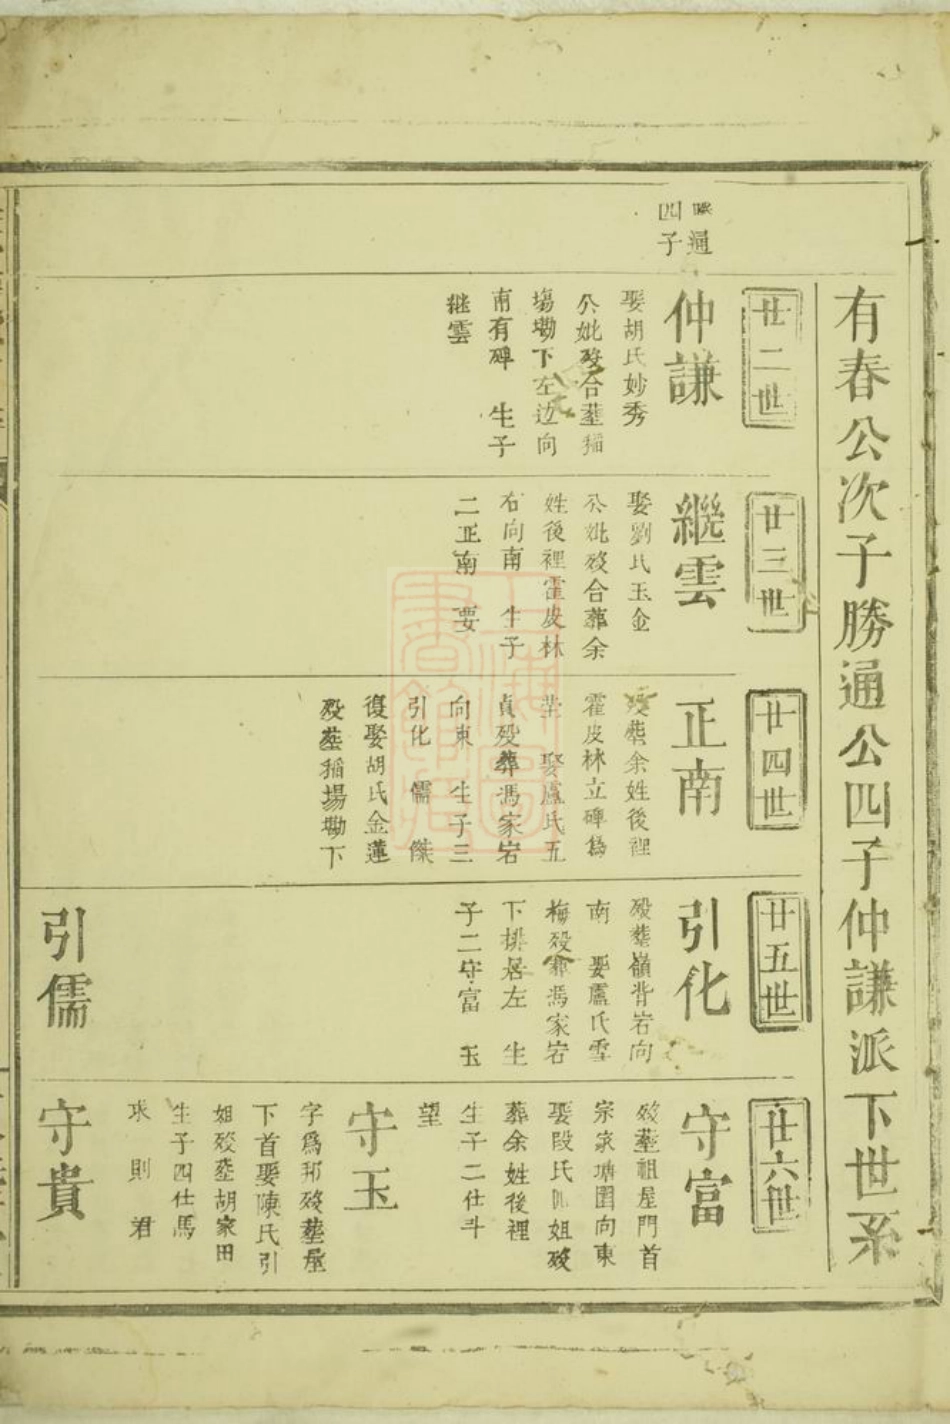 有春公次子勝通公四子仲謙派下世系
廿二世
通
四子
仲謙
娶胡氏妙秀
公妣歿合塟稲
塲墈下左边向
南有碑 生子
継雲
廿三世
繼雲
娶劉氏玉金
公妣歿合葬余
姓後裡霍皮林
右向南 生子
二正南 要
廿四世
正南
歿塟余姓後裡
霍皮林立碑為
塋 娶盧氏五
貞歿葬馮家宕
向東 生子三
引化 儒 傑
復娶胡氏金蓮
歿塟稲塲墈下
廿五世
引化
歿塟嶺背宕向
南 娶盧氏雪
梅歿葬馮家宕
下排居左 生
子二守富 玉
引儒
廿六世
守富
歿塟祖屋門首
宗家塘圍向東
娶段氏姐歿
葬余姓後裡
生子二仕斗
望
守玉
字為邦歿塟屋
下首娶陳氏引
姐歿塟胡家田
生子四仕馬
求 則 君
守貴